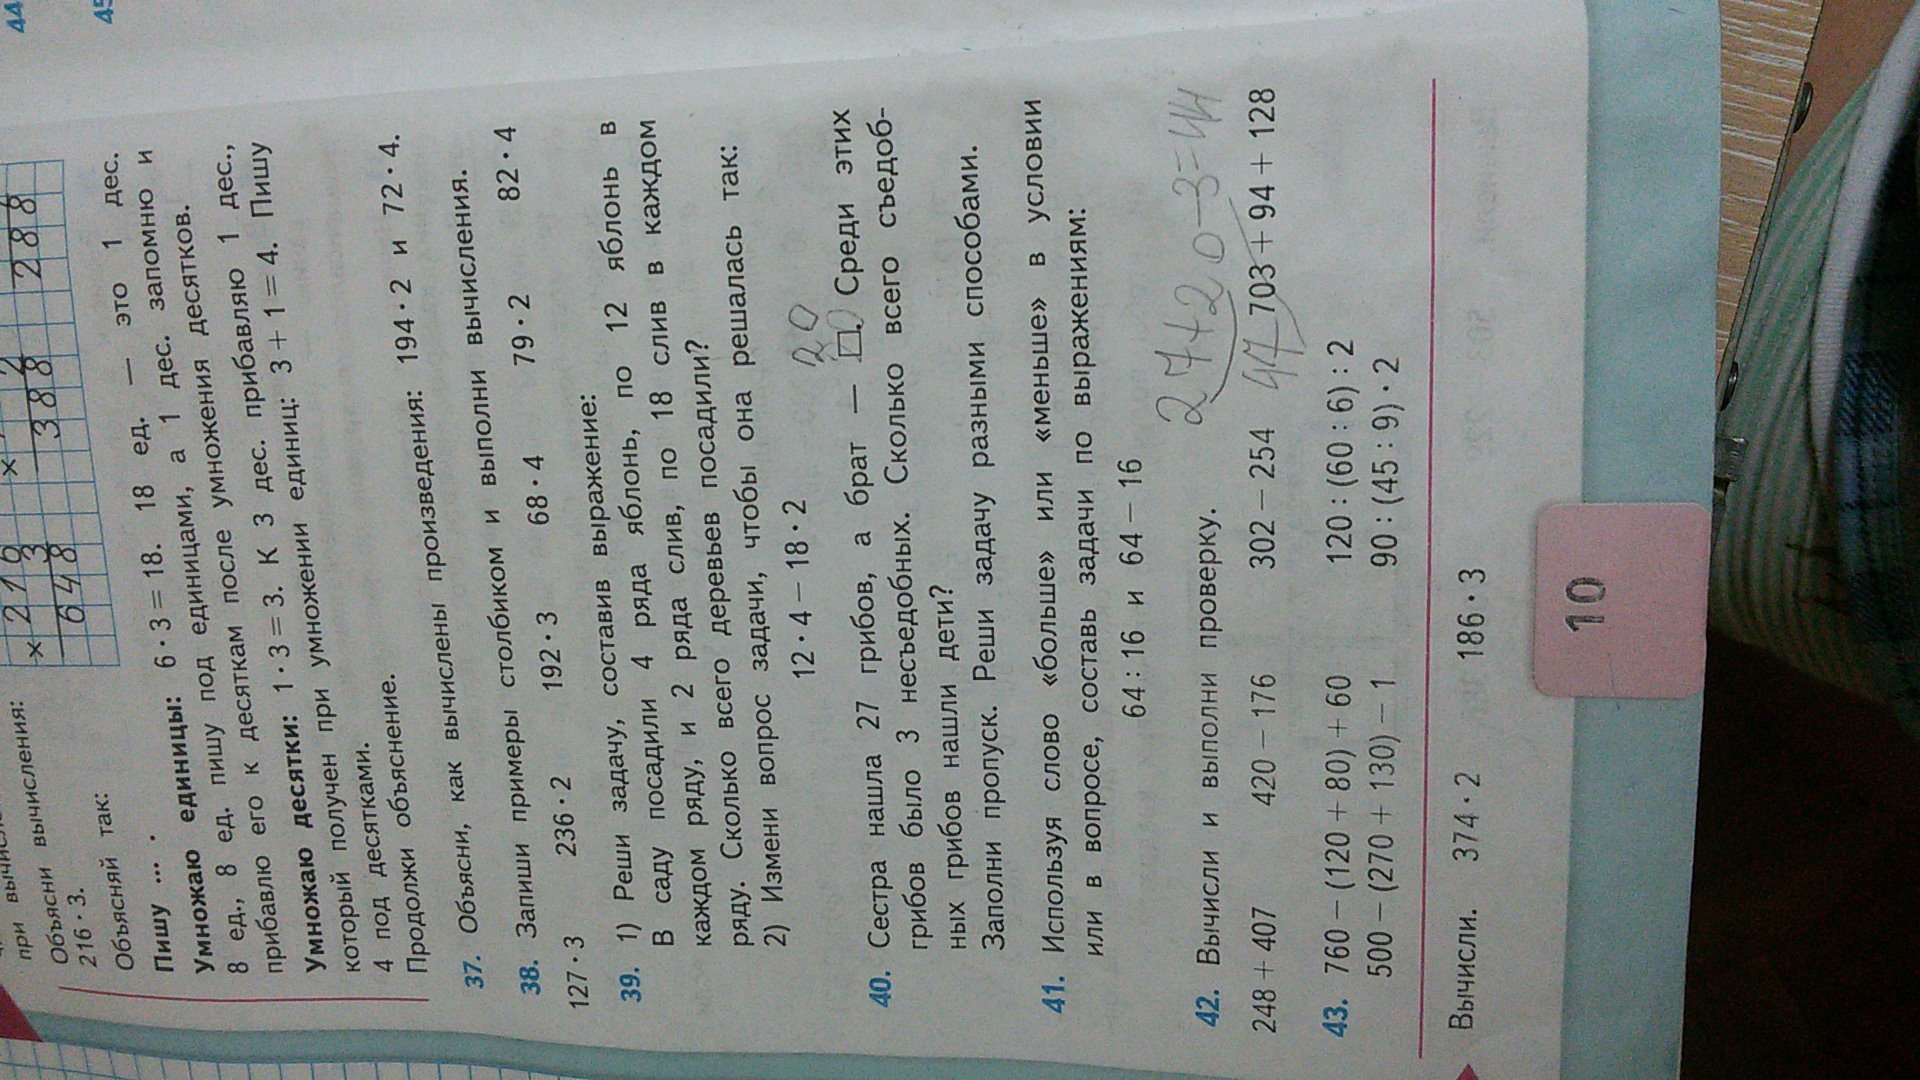 44
45
× 216
3
648
×
2
388
288
при вычисления:
Объясни вычисления:
216 · 3.
Объясняй так:
Пишу ... .
Умножаю единицы: 6 · 3 = 18. 18 ед. — это 1 дес.
8 ед., 8 ед. пишу под единицами, а 1 дес. запомню и
прибавлю его к десяткам после умножения десятков.
Умножаю десятки: 1 · 3 = 3. К 3 дес. прибавляю 1 дес.,
который получен при умножении единиц: 3 + 1 = 4. Пишу
4 под десятками.
Продолжи объяснение.
37. Объясни, как вычислены произведения: 194 · 2 и 72 · 4.
38. Запиши примеры столбиком и выполни вычисления.
127 · 3 236 · 2 192 · 3 68 · 4 79 · 2 82 · 4
39. 1) Реши задачу, составив выражение:
В саду посадили 4 ряда яблонь, по 12 яблонь в
каждом ряду, и 2 ряда слив, по 18 слив в каждом
ряду. Сколько всего деревьев посадили?
2) Измени вопрос задачи, чтобы она решалась так:
12 · 4 − 18 · 2
20
40. Сестра нашла 27 грибов, а брат — □. Среди этих
грибов было 3 несъедобных. Сколько всего съедоб-
ных грибов нашли дети?
Заполни пропуск. Реши задачу разными способами.
41. Используя слово «больше» или «меньше» в условии
или в вопросе, составь задачи по выражениям:
64 : 16 и 64 − 16
27+20−3=44
47
42. Вычисли и выполни проверку.
248 + 407 420 − 176 302 − 254 703 + 94 + 128
43. 760 − (120 + 80) + 60 120 : (60 : 6) : 2
500 − (270 + 130) − 1 90 : (45 : 9) · 2
Вычисли. 374 · 2 186 · 3
10